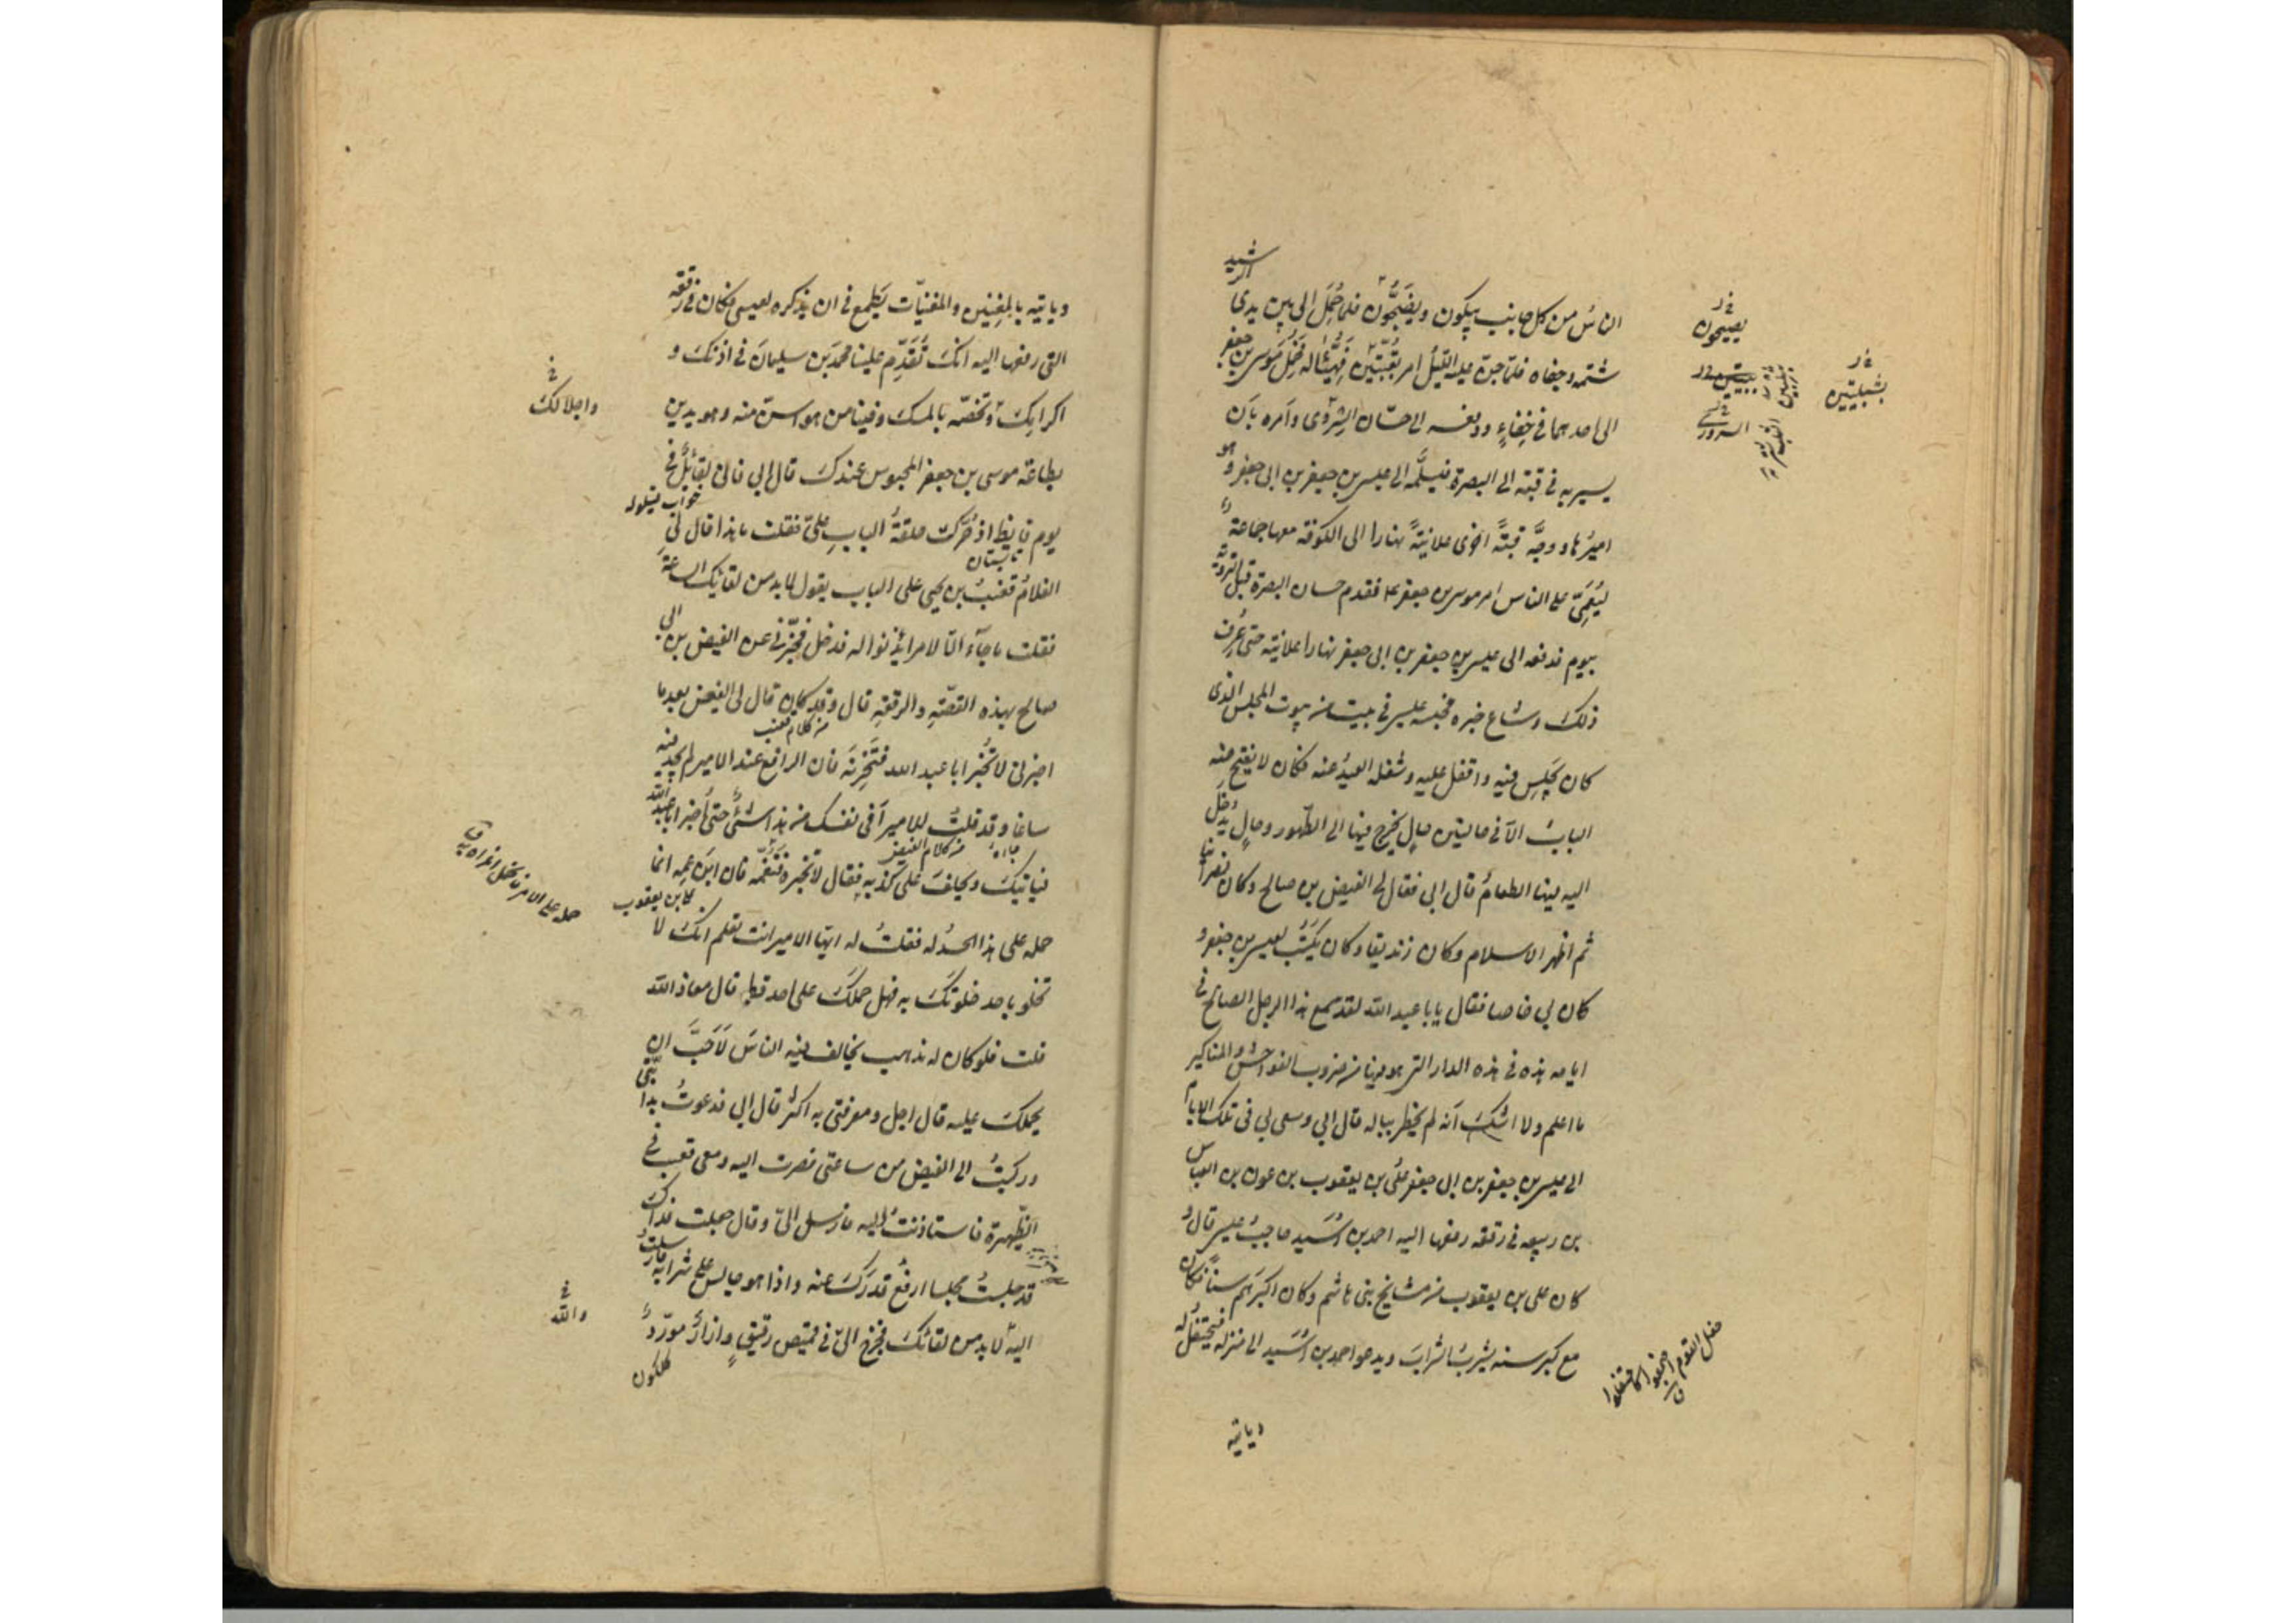 الناس من كل جانب يبكون ويضجّون فلما حُمل الى بين يدى الرشيد
شتمه وجفاه فلما جنّ عليه الليل امر بقبّتين فهُيّئتا له فحمل موسى بن جعفر
الى احدهما في خفاء ودفعه الى حسّان الشروى وامره بان
يسير به في قبة الى البصرة فيسلّمه الى عيسى بن جعفر بن ابى جعفر وهو
اميرها ووجّه قبّةً اخرى علانيةً نهارا الى الكوفة معها جماعة
ليُعمّى على الناس امر موسى بن جعفر ع فقدم حسان البصرة قبل التروية
بيوم فدفعه الى عيسى بن جعفر بن ابى جعفر نهارا علانية حتى عُرف
ذلك وشاع خبره فحبسه عيسى في بيت من بيوت المجلس الذى
كان يجلس فيه واقفل عليه وشغله العيد عنه فكان لا يفتح عنه
الباب الا في حالتين حال يخرج فيها الى الطهور وحال يُدخل
اليه فيها الطعام قال ابى فقال لى الفيض بن صالح وكان نصرانيا
ثم اظهر الاسلام وكان زنديقا وكان يكتب لعيسى بن جعفر و
كان بى خاصا فقال يابا عبد الله لقد سمع هذا الرجل الصالح فى
ايامه هذه في هذه الدار التى هو فيها من ضروب الفواحش والمناكير
ما اعلم ولا اشك انه لم يخطر بباله قال ابى وسعى بى فى تلك الايام
الى عيسى بن جعفر بن ابى جعفر علىّ بن يعقوب بن عون بن العباس
بن ربيعه في رقعة رفعها اليه احمد بن اُسَيد حاجب عيسى قال و
كان على بن يعقوب من مشايخ بنى هاشم وكان اكبرهم سنّاً فكان
مع كبر سنه يشرب الشراب ويدعو احمد بن اُسَيد الى منزله فيحتفل له
وياتيه
يصيحون
السرورى
حفل القوم اجتمعوا كاحتفلوا
ق
وياتيه بالمغنين والمغنيّات يَطمع في ان يذكره لعيسى فكان في رقعته
التى رفعها اليه انّك تُقَدِّم علينا محمدَ بن سليمان في اذنك و
اكرامك وتخصّه بالمسك وفينا من هو اسنّ منه وهو يدين
واجلالك
بطاعة موسى بن جعفر المحبوس عندك قال ابى فانى لقائلٌ في
خواب قيلوله
يوم قايظ اذ حُرّكت حلقةُ الباب علىّ فقلت ما هذا قال لى
تابستان
الغلام قعنب بن يحيى على الباب يقول لا بد من لقائك الساعة
فقلت ما جآء الّا لامر ائذنوا له فدخل فخبّرنى عن الفيض بن ابى
صالح بهذه القصّة والرقعة قال وقد كان قال لى الفيض بعد ما
من كلام قعنب
اخبرنى لا تُخبر ابا عبد الله فتحزنه فان الرافع عند الامير لم يجد فيه
ساغا وقد قلت للامير أفى نفسك من هذا شئٌ حتى أُخبر ابا عبد الله
من كلام الفيض
فياتيك ويحلف على كذبه فقال لا تخبره فتغمّه فان ابن عمه انما
على بن يعقوب
حمله على هذا الحسدُ له فقلت له ايّها الامير انت تعلم انّك لا
تخلو باحد خلوتك به فهل حملك على احد قط قال معاذ الله
قلت فلو كان له مذهب يخالف فيه الناس لاحبّ ان
يحملك عليه قال اجل ومعرفتى به اكثر قال ابى فدعوتُ بدابّتى
وركبتُ الى الفيض من ساعتى فصرت اليه ومعى قعنب في
الظّهيرة فاستاذنتُ اليه فارسل الىّ وقال جعلت فداك
قد جلستُ مجلسا ارفع قدرك عنه واذا هو جالس على شرابه فارسلتُ
اليه لا بد من لقائك فخرج الىّ في قميص رقيق وازار مورّد
والله
گلگون